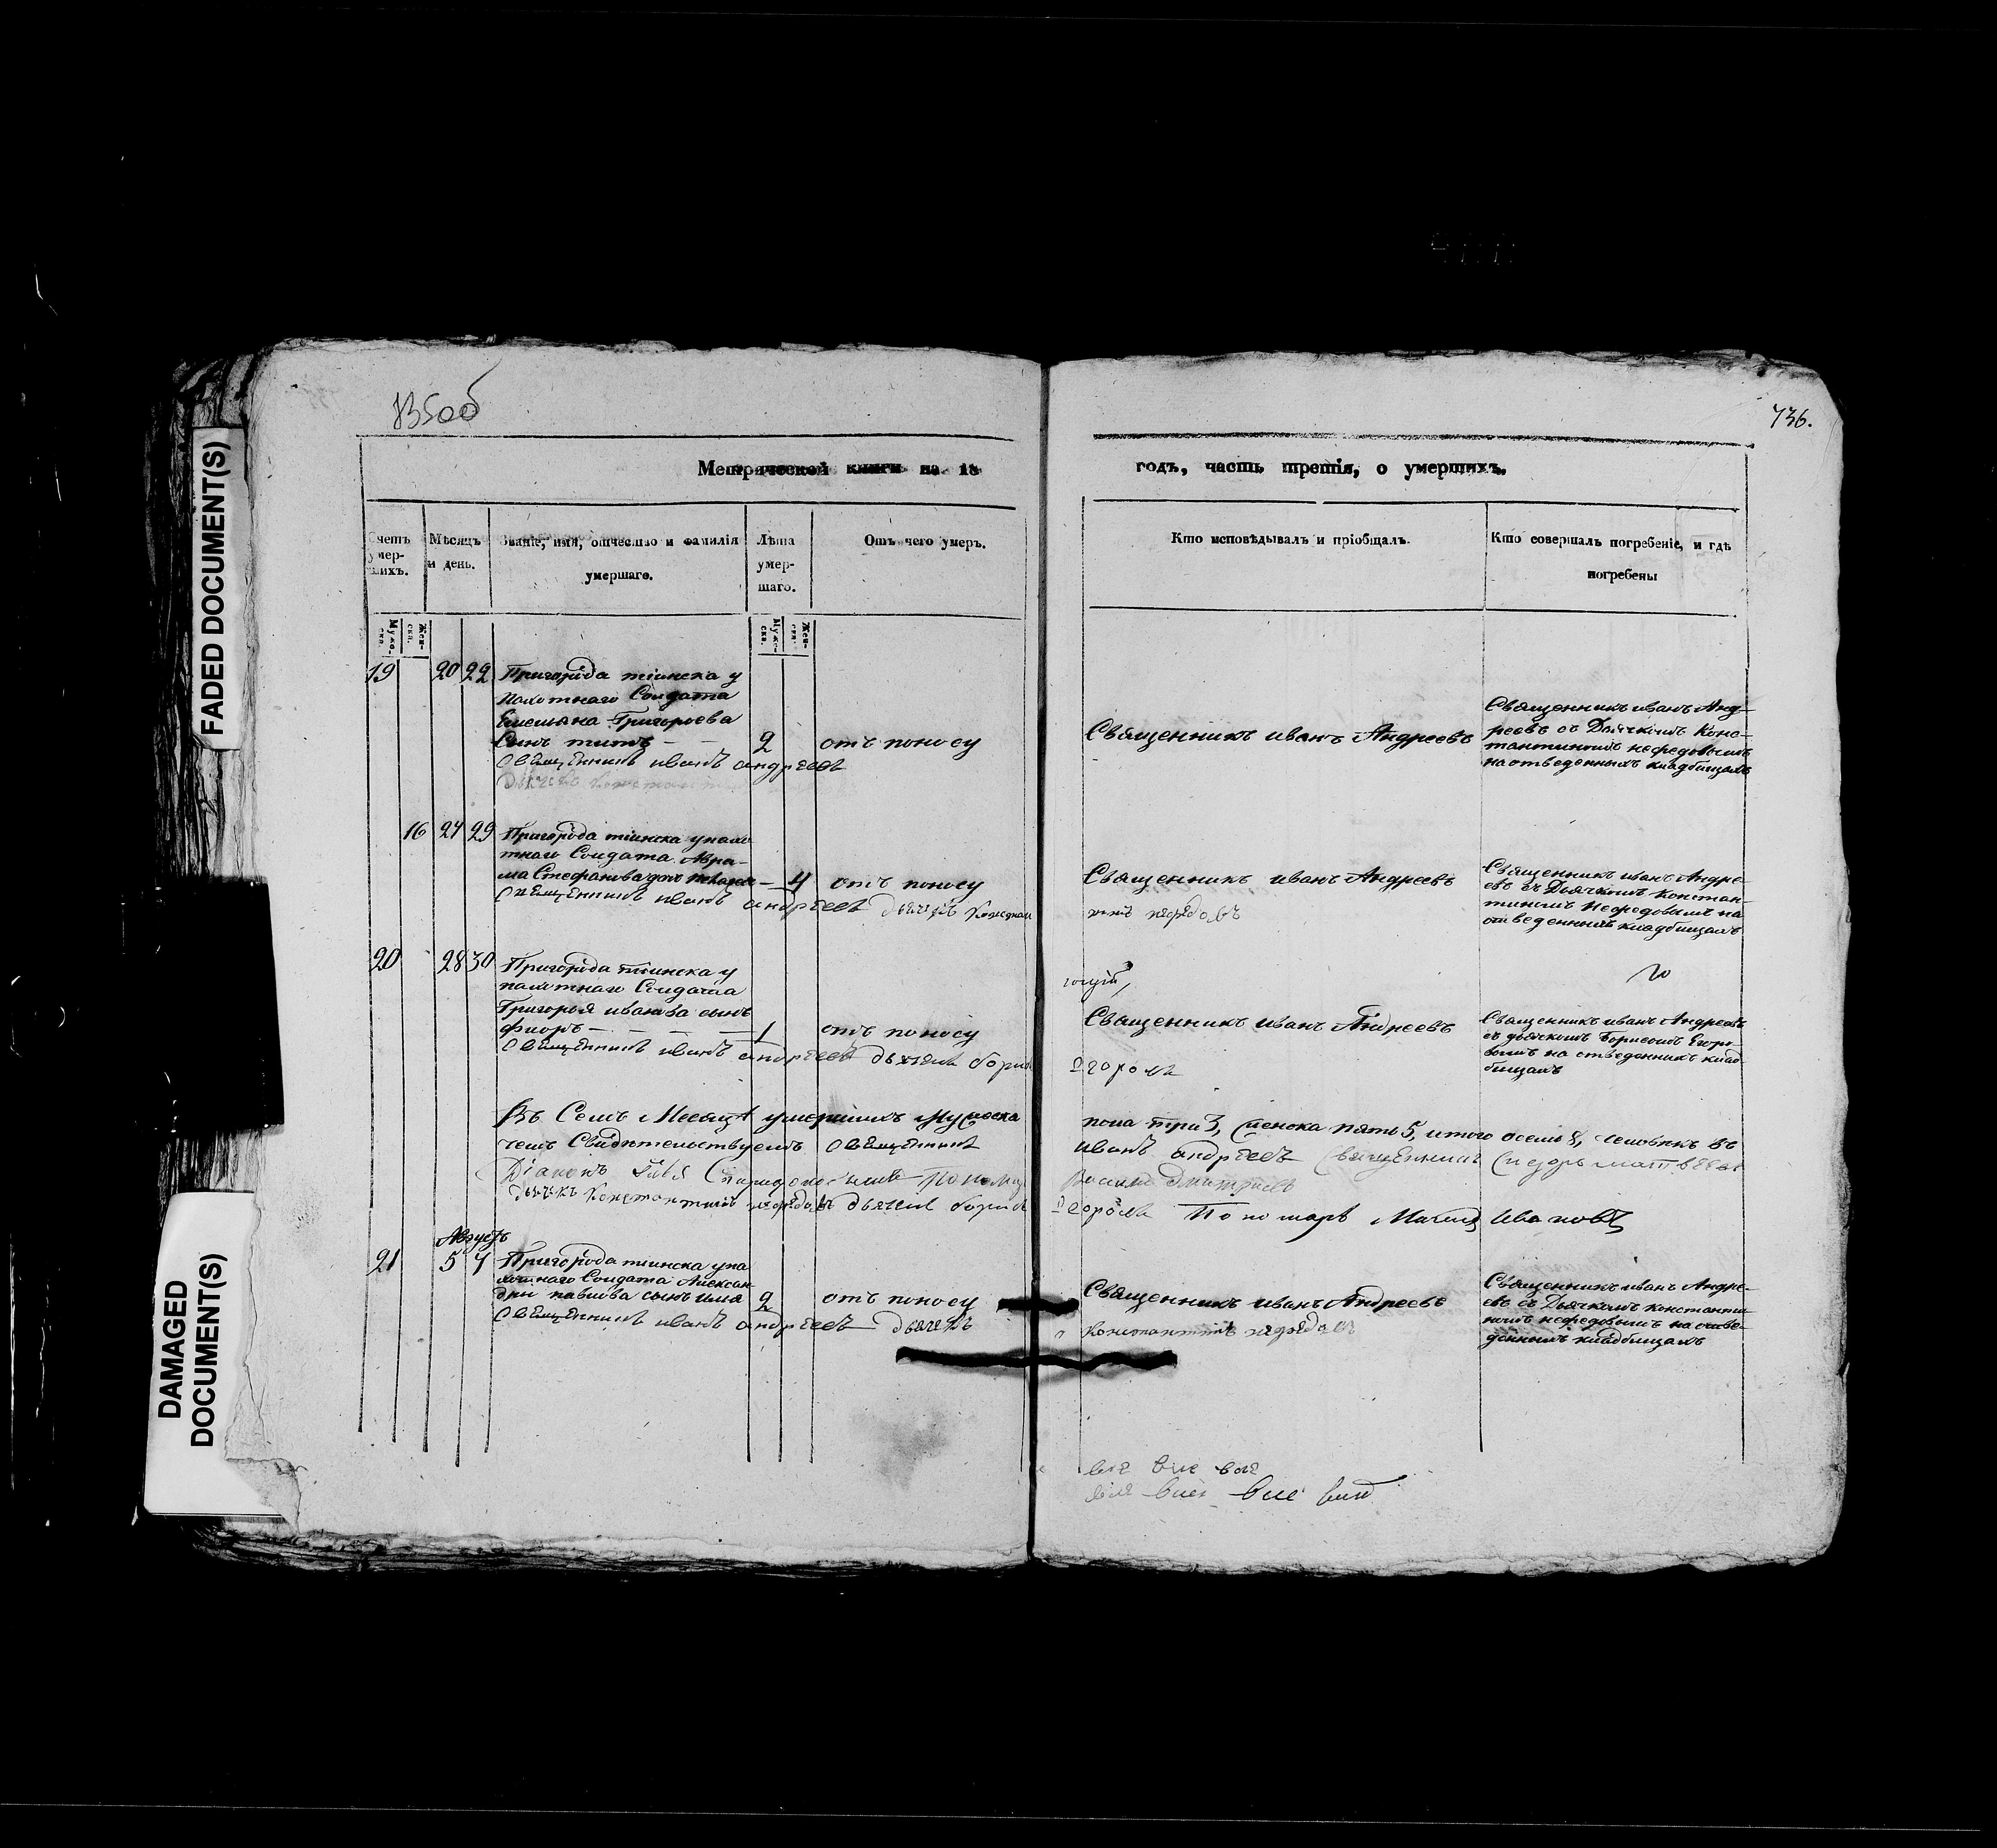 FADED DOCUMENT(S)
DAMAGED
DOCUMENT(S)
735об
736.
Метрической книги на 18
годъ, часть третія, о умершихъ.
Счетъ умер-шихъ.
Мѣсяцъ и день.
Званіе, имя, отчество и фамилія умершаго.
Лѣта умер-шаго.
Отъ чего умеръ.
Кто исповѣдывалъ и пріобщалъ.
Кто совершалъ погребеніе, и гдѣ погребены
Муже-ска.
Жен-ска.
Муже-ска.
Жен-ска.
19 20 22 Пригорода тіинска у
пахотнаго Солдата
Емельяна Григорьева
Сынъ титъ 2 отъ поносу
Священникъ иванъ андреевъ
Дьячекъ
Священникъ иванъ Андреевъ
Священникъ иванъ Анд-
реевъ съ Дьячкомъ Конс-
тантиномъ нефедовымъ
на отведенныхъ кладбищахъ
16 27 29 Пригорода тіинска у пахо
тнаго Солдата Авра-
ма Стефанова дочь 4 отъ поносу
Священникъ иванъ андреевъ дьячекъ
Священникъ иванъ Андреевъ
Священникъ иванъ Андре-
евъ съ Дьячкомъ Констан-
тиномъ Нефедовымъ на
отведенныхъ кладбищахъ
20 28 30 Пригорода тіинска у
пахотнаго Солдата
Григорья иванова сынъ
флоръ 1 отъ поносу
Священникъ иванъ андреевъ дьячекъ борисъ
Священникъ иванъ Андреевъ
Священникъ иванъ Андреевъ
съ дьячкомъ Борисомъ Егоро-
вымъ на отведенныхъ клад-
бищахъ
Въ Семъ Месяцѣ умершихъ Мужеска
пола три 3, женска пять 5, итого осемь 8, человѣкъ въ
чемъ Свидѣтельствуемъ Священникъ
иванъ андреевъ Священникъ Сидоръ матвѣевъ
Діаконъ
Василей Дмитріевъ
дьячекъ Константинъ нефедовъ дьячекъ борисъ
Пономарь Иванов
Августъ
21 5 7 Пригорода тіинска у па
хотнаго Солдата Алексан-
дры павлова сынъ илья 2 отъ поносу
Священникъ иванъ андреевъ дьячекъ
Священникъ иванъ Андреевъ
Константинъ нефедовъ
Священникъ иванъ Андре-
евъ съ Дьячкомъ константи-
номъ нефедовымъ на отве-
денныхъ кладбищахъ